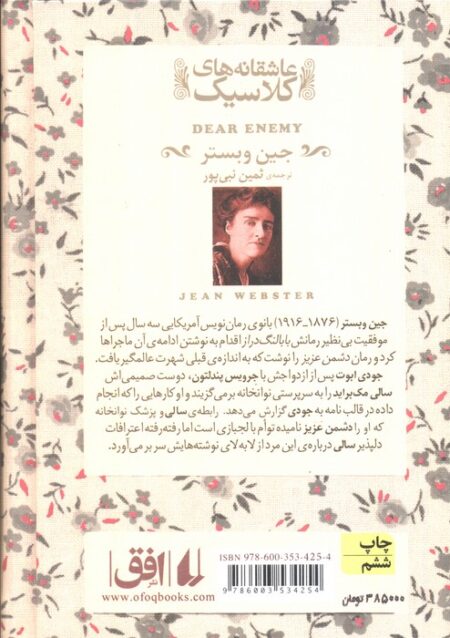 عاشقانه‌های
کلاسیک
DEAR ENEMY
جین وبستر
ترجمه‌ی ثمین نبی‌پور
JEAN WEBSTER
جین وبستر (۱۸۷۶-۱۹۱۶) بانوی رمان‌نویس آمریکایی سه سال پس از
موفقیت بی‌نظیر رمانش بابالنگ‌دراز اقدام به نوشتن ادامه‌ی آن ماجراها
کرد و رمان دشمن عزیز را نوشت که به اندازه‌ی قبلی شهرت عالمگیر یافت.
جودی ابوت پس از ازدواجش با جرویس پندلتون، دوست صمیمی‌اش
سالی مک‌براید را به سرپرستی نوانخانه برمی‌گزیند و او کارهایی را که انجام
داده در قالب نامه به جودی گزارش می‌دهد. رابطه‌ی سالی و پزشک نوانخانه
که او را دشمن عزیز نامیده توأم با لجبازی است اما رفته‌رفته اعترافات
دلپذیر سالی درباره‌ی این مرد از لابه‌لای نوشته‌هایش سر بر می‌آورد.
افق
www.ofoqbooks.com
ISBN 978-600-353-425-4
9 786003 534254
چاپ
ششم
۳۸۵۰۰۰ تومان